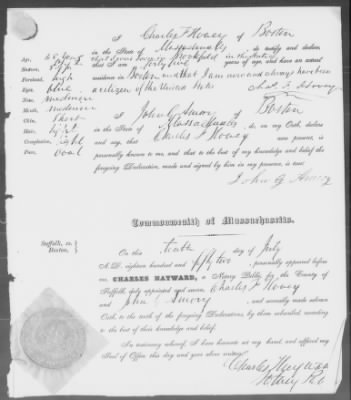 I Charles F Hovey of Boston
in the State of Massachusetts do testify and declare,
that I was born in Brookfield in this State
that I am forty five years of age, and have an usual
residence in Boston and that I am now and always have been
a citizen of the United States
Chas. F. Hovey
Age, 45 years
Stature,
Forehead, high
Eyes, blue
Nose, medium
Mouth, medium
Chin, short
Hair, light
Complexion, light
Face, oval
I John G. Amory of Boston
in the State of Massachusetts do, on my Oath, declare
and say, that Charles F Hovey now present, is
personally known to me, and that to the best of my knowledge and belief the
foregoing Declaration, made and signed by him in my presence, is true:
John G Amory
Commonwealth of Massachusetts.
Suffolk, ss.
Boston,
On this tenth day of July
A.D. eighteen hundred and fifty two, personally appeared before
me CHARLES HAYWARD, a Notary Public, for the County of
Suffolk, duly appointed and sworn, Charles F Hovey
and John G Amory and severally made solemn
Oath, to the truth of the foregoing Declarations, by them subscribed according
to the best of their knowledge and belief.
In testimony whereof, I have hereunto set my hand, and affixed my
Seal of Office this day and year above written.
Charles Hayward
Notary Pub